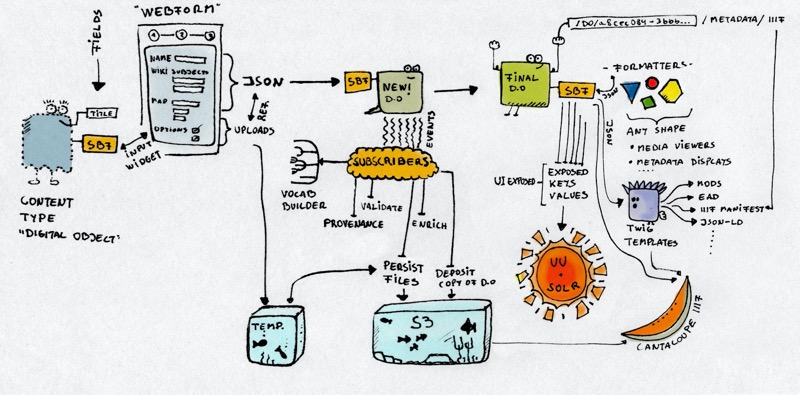 "WEBFORM"
1 2 3
FIELDS
NAME
WIKI SUBJECTS
MAP
OPTIONS
TITLE
SBF
INPUT
WIDGET
CONTENT
TYPE
"DIGITAL OBJECT"
JSON
REF.
UPLOADS
SBF
NEW!
D.O
EVENTS
SUBSCRIBERS
VOCAB
BUILDER
PROVENANCE
VALIDATE
ENRICH
PERSIST
FILES
DEPOSIT
COPY OF D.O
TEMP.
S3
FINAL
D.O
SBF
JSON
/METADATA/ IIIF
- FORMATTERS -
ANY SHAPE
• MEDIA VIEWERS
• METADATA DISPLAYS
.....
UI EXPOSED
EXPOSED
KEYS
VALUES
UV
SOLR
TWIG
TEMPLATES
MODS
EAD
IIIF MANIFEST
JSON-LD
CANTALOUPE IIIF